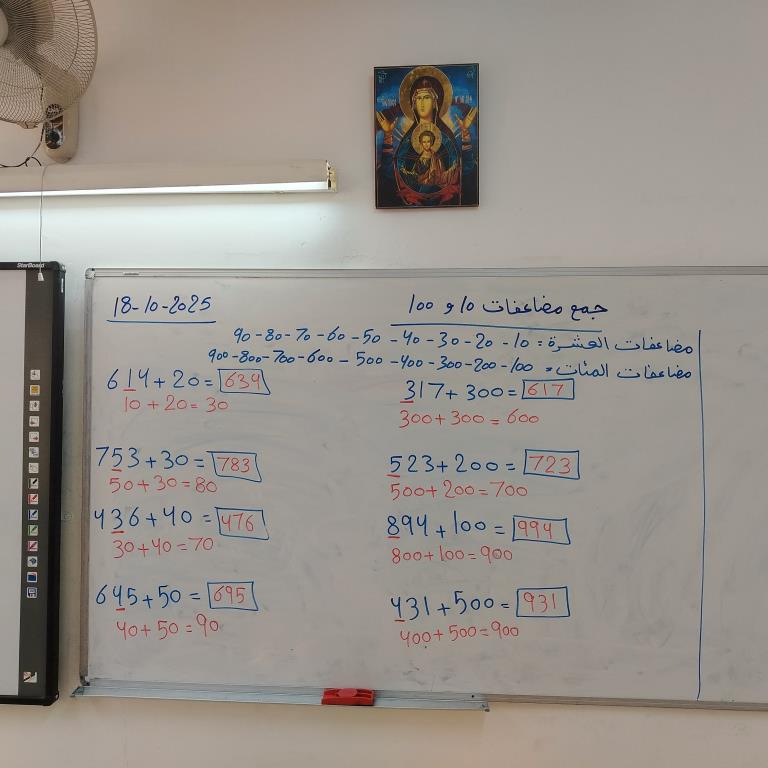 StarBoard
18-10-2025
جمع مضاعفات 10 و 100
مضاعفات العشرة: 10 - 20 - 30 - 40 - 50 - 60 - 70 - 80 - 90
مضاعفات المئات: 100 - 200 - 300 - 400 - 500 - 600 - 700 - 800 - 900
614 + 20 = 634
10 + 20 = 30
753 + 30 = 783
50 + 30 = 80
436 + 40 = 476
30 + 40 = 70
645 + 50 = 695
40 + 50 = 90
317 + 300 = 617
300 + 300 = 600
523 + 200 = 723
500 + 200 = 700
894 + 100 = 994
800 + 100 = 900
431 + 500 = 931
400 + 500 = 900